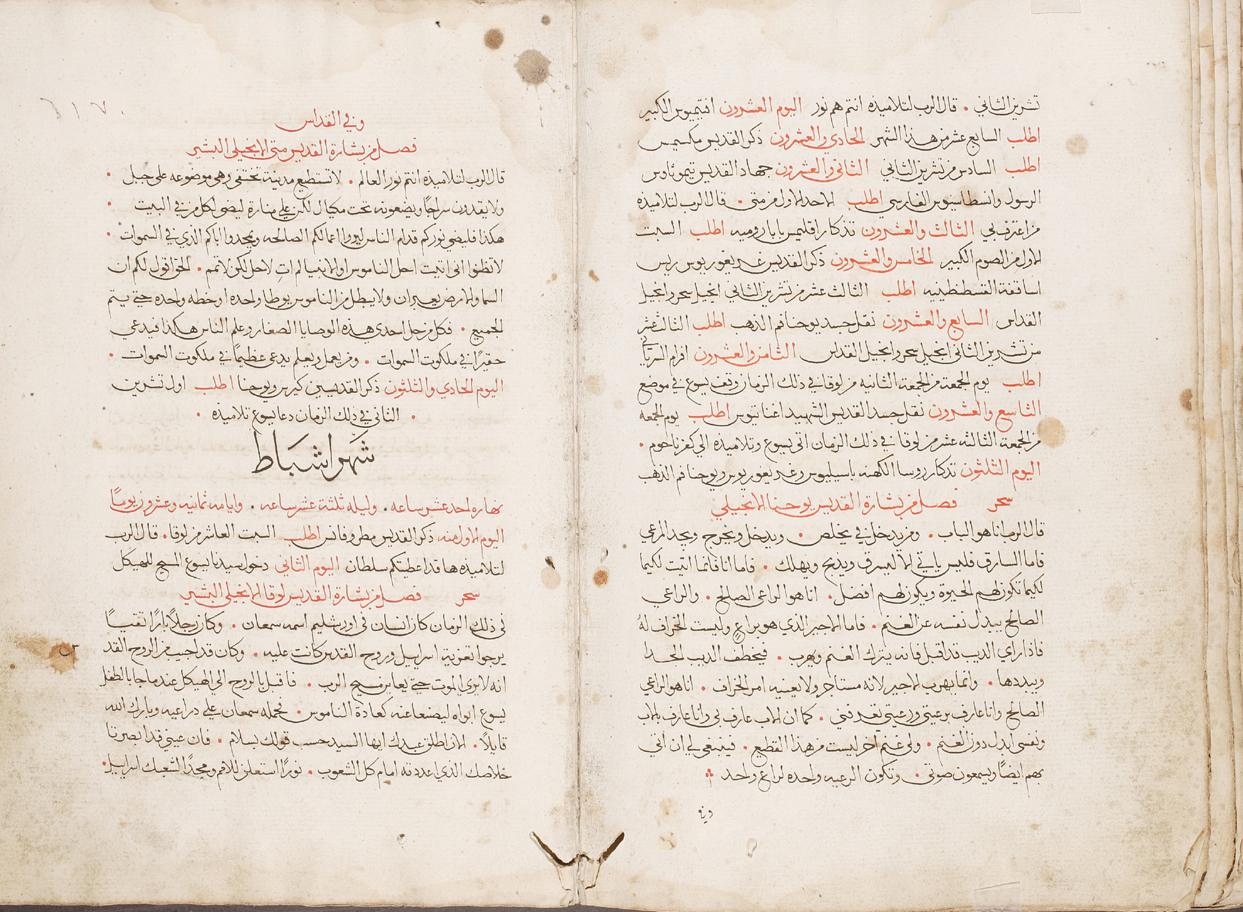 تشرين الثاني · قال الرب لتلاميذه انتم هم نور اليوم العشرون افتيميوس الكبير
اطلب السابع عشر من هذا الشهر الحادي والعشرون ذكر القديس مكسيمس
اطلب السادس من تشرين الثاني الثاني والعشرون جهاد القديس تيموثاوس
الرسول وانسطاسيوس الفارسي اطلب الاحد الاول من متى · قال الرب لتلاميذه
من اعترف بي الثالث والعشرون تذكار اقليمس بابا روميه اطلب السبت
الاول من الصوم الكبير الخامس والعشرون ذكر القديس غريغوريوس ريس
اساقفة القسطنطينيه اطلب الثالث عشر من تشرين الثاني انجيل سحر وانجيل
القداس السابع والعشرون نقل جسد يوحنا فم الذهب اطلب الثالث عشر
من تشرين الثاني انجيل سحر وانجيل القداس الثامن والعشرون افرام السرياني
اطلب يوم الجمعة من الجمعة الثانيه من لوقا في ذلك الزمان وقف يسوع في موضع
التاسع والعشرون نقل جسد القديس الشهيد اغناتيوس اطلب يوم الجمعه
من الجمعة الثالثه عشر من لوقا في ذلك الزمان اتى يسوع وتلاميذه الى كفرناحوم ·
اليوم الثلثون تذكار روسا الكهنه باسيليوس وغريغوريوس ويوحنا فم الذهب
سحر فصل من بشارة القديس يوحنا الانجيلي
قال الرب انا هو الباب · ومن يدخل بي يخلص · ويدخل ويخرج ويجد المرعي
فاما السارق فليس ياتي الا ليسرق ويذبح ويهلك · فاما انا فانما اتيت لكيما
لكيما تكون لهم الحيوة ويكون لهم افضل · انا هو الراعي الصالح · والراعي
الصالح يبدل نفسه عن الغنم · فاما الاجير الذي هو براعٍ وليست الخراف له
فاذا راي الديب قد اقبل فانه يترك الغنم ويهرب · فيخطف الديب الخراف
ويبددها · وانما يهرب الاجير لانه مستاجر ولا يعنيه امر الخراف · انا هو الراعي
الصالح وانا عارف برعيتي ورعيتي تعرفني · كما ان الاب عارف بي وانا عارف بالاب
ونفسي ابدل دون الغنم · ولي غنم آخر ليست من هذا القطيع · فينبغي لي ان اتي
بهم ايضاً ويسمعون صوتي · وتكون الرعيه واحده لراعٍ واحد
وفي
٣١٧
وفي القداس
فصل من بشارة القديس متى الانجيلي البشير
قال الرب لتلاميذه انتم نور العالم · لا تستطيع مدينة تختفي وهي موضوعه على جبل ·
ولا يقدون سراجاً ويضعونه تحت مكيال لكن على منارة ليضي لكل من في البيت ·
هكذا فليضي نوركم قدام الناس ليروا اعمالكم الصالحه ويمجدوا اباكم الذي في السموات ·
لا تظنوا اني اتيت احل الناموس او الانبيا لم اتِ لاحل لكن لاتمم · الحق اقول لكم ان
السما والارض يعبران ولا يبطل من الناموس يوطا واحده او خطه واحده حتى يتم
الجميع · فكل من حل احدي هذه الوصايا الصغار وعلم الناس هكذا فيدعي
حقيراً في ملكوت السموات · ومن يعمل ويعلم يدعى عظيماً في ملكوت السموات ·
اليوم الحادي والثلثون ذكر القديسين كير ويوحنا اطلب اول تشرين
· الثاني في ذلك الزمان دعا يسوع تلاميذه ·
شهر اشباط
نهاره احد عشر ساعه · وليله ثلثة عشر ساعه · وايامه ثمانيه وعشرون يوماً
اليوم الاول منه ذكر القديس مطروفانس اطلب السبت العاشر من لوقا · قال الرب
لتلاميذه ها قد اعطيتكم سلطان اليوم الثاني دخول سيدنا يسوع المسيح الهيكل
سحر فصل من بشارة القديس لوقا الانجيلي البشير
في ذلك الزمان كان انسان في اورشليم اسمه سمعان · وكان رجلاً باراً تقياً
يرجوا تعزية اسراييل وروح القدس كانت عليه · وكان قد اجيب من الروح القدس
انه لا يرى الموت حتى يعاين مسيح الرب · فاقبل بالروح الى الهيكل عندما جا بالطفل
يسوع ابواه ليصنعا عنه كعادة الناموس · فحمله سمعان على دراعيه وبارك الله
قايلاً · الان اطلق عبدك ايها السيد حسب قولك بسلام · فان عيني قد ابصرتا
خلاصك الذي اعددته امام كل الشعوب · نوراً استعلن للامم ومجداً لشعبك اسراييل ·